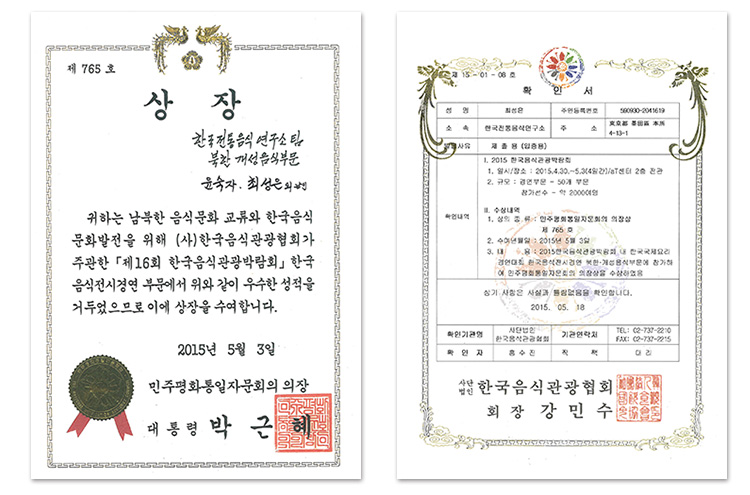 제 765 호
상 장
한국전통음식 연구소 팀
북한 개성음식부문
윤숙자 · 최성은
귀하는 남북한 음식문화 교류와 한국음식
문화발전을 위해 (사)한국음식관광협회가
주관한 「제16회 한국음식관광박람회」 한국
음식전시경연 부문에서 위와 같이 우수한 성적을
거두었으므로 이에 상장을 수여합니다.
2015년 5월 3일
민주평화통일자문회의 의장
대통령 박 근 혜
제 15 - 01 - 08 호
확 인 서
성 명 최성은 주민등록번호 590930-2041619
소 속 한국전통음식연구소 주 소 東京都 墨田區 本所 4-13-1
제 출 용 (입증용)
확인내역
I. 2015 한국음식관광박람회
1. 일시/장소 : 2015.4.30.~5.3(4일간)/aT센터 2층 전관
2. 규모 : 경연부문 - 50개 부문
참가선수 - 약 2000여명
II. 수상내역
1. 상의 종류 : 민주평화통일자문회의 의장상
제 765 호
2. 수여년월일 : 2015년 5월 3일
3. 내 용 : 2015한국음식관광박람회 내 한국국제요리
경연대회 한국음식전시경연 북한·개성음식부문에 참가하
여 민주평화통일자문회의 의장상을 수상하였음
상기 사항은 사실과 틀림없음을 확인합니다.
2015. 05. 18
확인기관명 사단법인 한국음식관광협회 기관연락처 TEL: 02-737-2210
FAX: 02-737-2215
확 인 자 홍수진 직 책 대 리
사단법인 한국음식관광협회
회 장 강 민 수